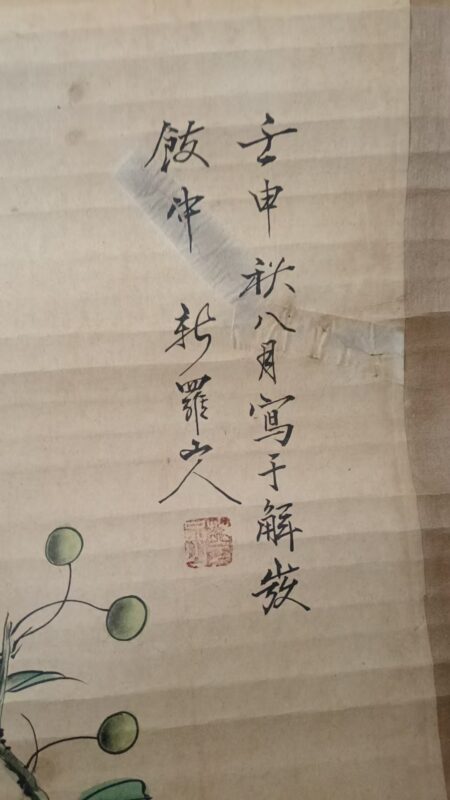 壬申秋八月寫于解
新羅山人